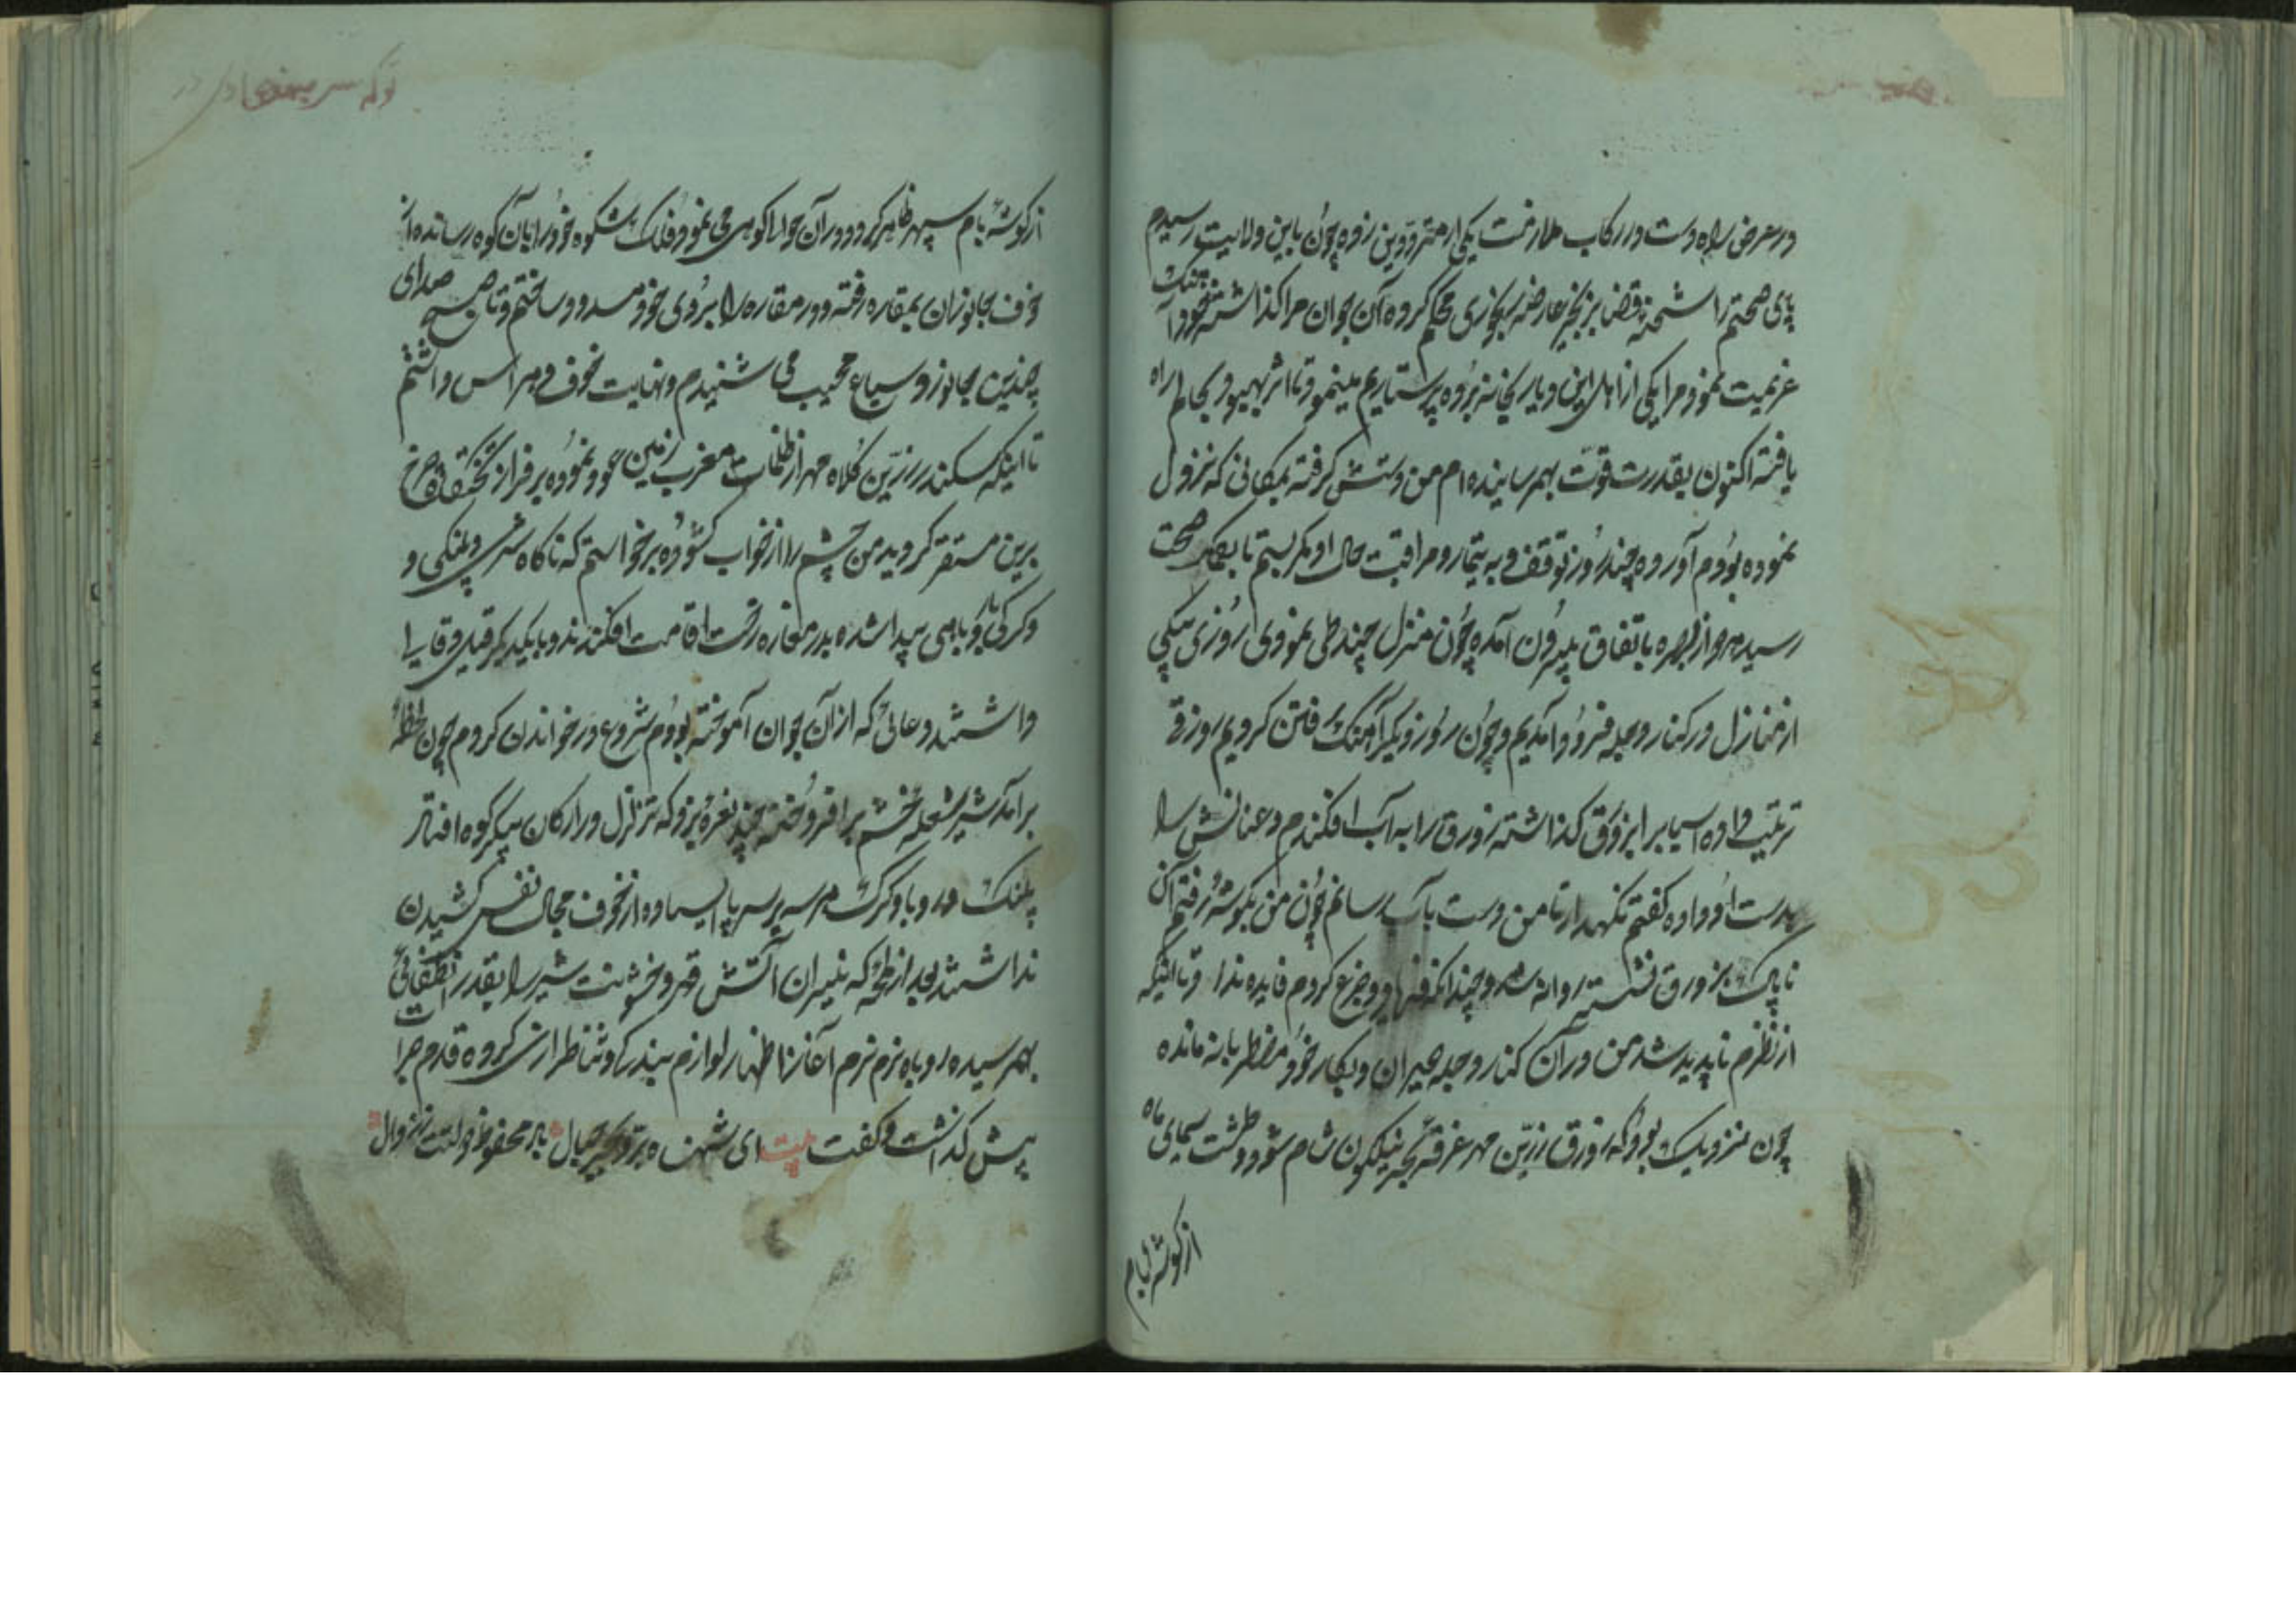 در عرض راه دست در رکاب ملازمت یکی از مترددین زده چون باین ولایت رسیدم
پای صحتم را شحنه قضا بزنجیر عارضه رنجوری محکم کرده آن جوان مرا گذاشته خود آهنگ
عزیمت نمود و مرا یکی از اهل این دیار بخانه برده پرستاریم مینمود تا اثر بهبود بحالم راه
یافته اکنون بقدرت قوت بهم رسانیده ام من دستش گرفته بمکانی که نزول
نموده بودم آورده چند روز توقف و به تیمار و مراقبت حال او کمر بستم تا بحالت صحت
رسیده و از بصره باتفاق بیرون آمده چون منزل چند طی نمودی روزی بیکی
از منازل در کنار دجله فرود آمدیم و چون روز دیگر آهنک رفتن کردیم زورقی
ترتیب داده اسبابرا بر زورق گذاشته زورق را به آب افکندم و عنانش را
بدست او داده گفتم نگهدار تا من دست بآب رسانم چون من بگوشه رفتم آن
ناپاک بزورق نشسته روانه شد و چندانکه فریاد و جزع کردم فایده نداد تا اینکه
از نظرم ناپدید شد من در آن کنار دجله حیران و بکار خود مضطربانه مانده
چون نزدیک بود که زورق زرین مهر غرقه بحر نیلگون شام شود وحشت سیمای ماه
از گوشه بام
از گوشه بام سپهر ظاهر کرد و در آن حوالی کوهی می نمود فلک شکوه خود را بآن کوه رسانده از
خوف جانوران بمغاره رفته و در مغاره را بروی خود مسدود ساختم و تا صبح صدای
چندین جانور و سباع مهیب می شنیدم و نهایت خوف و هراس داشتم
تا اینکه سکندر زرین کلاه مهر از ظلمات مغرب زمین عود نموده بر فراز تخت چرخ
برین مستقر گردید من چشم را از خواب گشوده برخواستم که ناگاه شیری و پلنگی و
و گرگی و روباهی پیدا شده بدر مغاره رخت اقامت افکندند و با یکدیگر قیل و قال را
داشتند دعائی که از آن جوان آموخته بودم شروع در خواندن کردم چون لحظه
برآمد شیر شعله خشم برافروخته چند نعره بزد که تزلزل در ارکان پیکر کوه افتاد
پلنگ و روباه و گرگ هر سه بر سر پا ایستاده از خوف مجال نفس کشیدن
نداشتند بعد از لحظه که نیران آتش قهر و خشونت شیر را بقدر انطفائی
بهم رسیده روباه نرم نرم آغاز اظهار لوازم بندگی و تناظرازی کرده قدم جرات
پیش گذاشت و گفت بیت ای شهنشاه باد محفوظ دولتت ز زوال